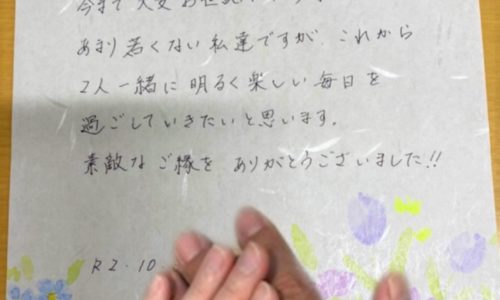 今まで大変お世話
あまり若くない私達ですが これから
2人一緒に 明るく楽しい毎日を
過ごしていきたいと思います。
素敵な ご縁を ありがとうございました!!
R2.10